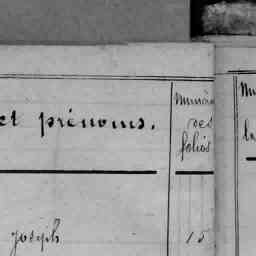 et prénoms.
Numéro
des
folios
joseph
15